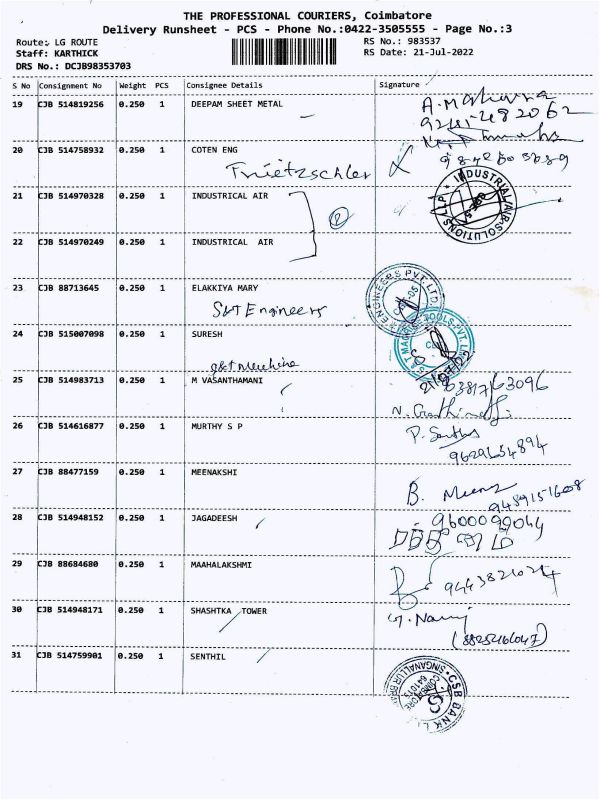 THE PROFESSIONAL COURIERS, Coimbatore
Delivery Runsheet - PCS - Phone No.:0422-3505555 - Page No.:3
Route: LG ROUTE RS No.: 983537
Staff: KARTHICK RS Date: 21-Jul-2022
DRS No.: DCJB98353703
S No Consignment No Weight PCS Consignee Details Signature
19 CJB 514819256 0.250 1 DEEPAM SHEET METAL
20 CJB 514758932 0.250 1 COTEN ENG
21 CJB 514970328 0.250 1 INDUSTRICAL AIR
INDUSTRIAL AIR SOLUTIONS LLP
22 CJB 514970249 0.250 1 INDUSTRICAL AIR
23 CJB 88713645 0.250 1 ELAKKIYA MARY
ENGINEERS PVT. LTD
S&T Engineers
24 CJB 515007098 0.250 1 SURESH
S&T Machine
25 CJB 514983713 0.250 1 M VASANTHAMANI
26 CJB 514616877 0.250 1 MURTHY S P
9629654894
27 CJB 88477159 0.250 1 MEENAKSHI
B. Meena
9489151608
28 CJB 514948152 0.250 1 JAGADEESH
9600099064
29 CJB 88684680 0.250 1 MAAHALAKSHMI
30 CJB 514948171 0.250 1 SHASHTKA TOWER
(8825466047)
31 CJB 514759901 0.250 1 SENTHIL
CSB BANK
SINGANALLUR
COIMBATORE